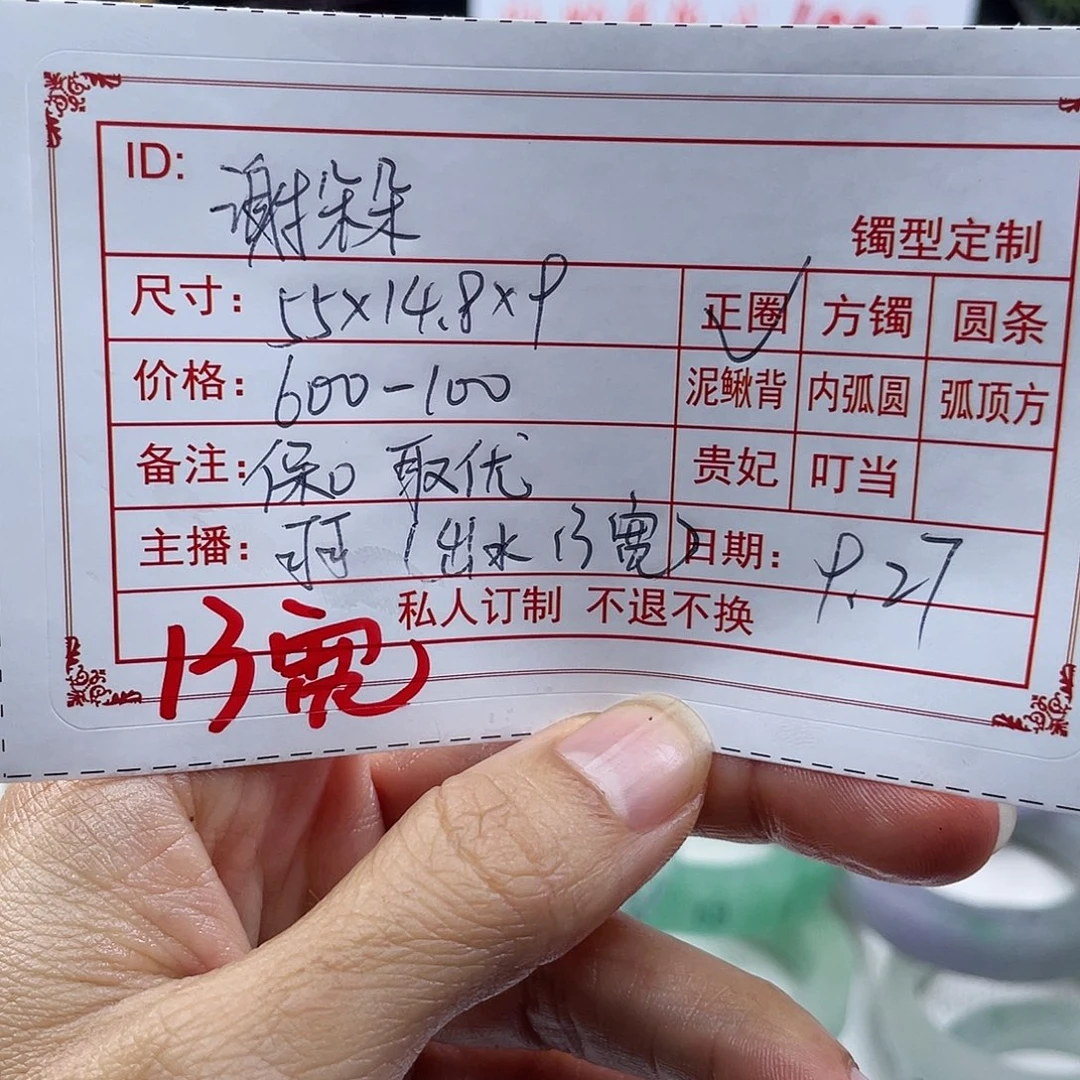 ID: 谢朵朵
镯型定制
尺寸: 55×14.8×9 正圈 方镯 圆条
价格: 600-100 泥鳅背 内弧圆 弧顶方
备注: 保口 取优 贵妃 叮当
主播: (出水13宽) 日期: 9.27
私人订制 不退不换
13宽